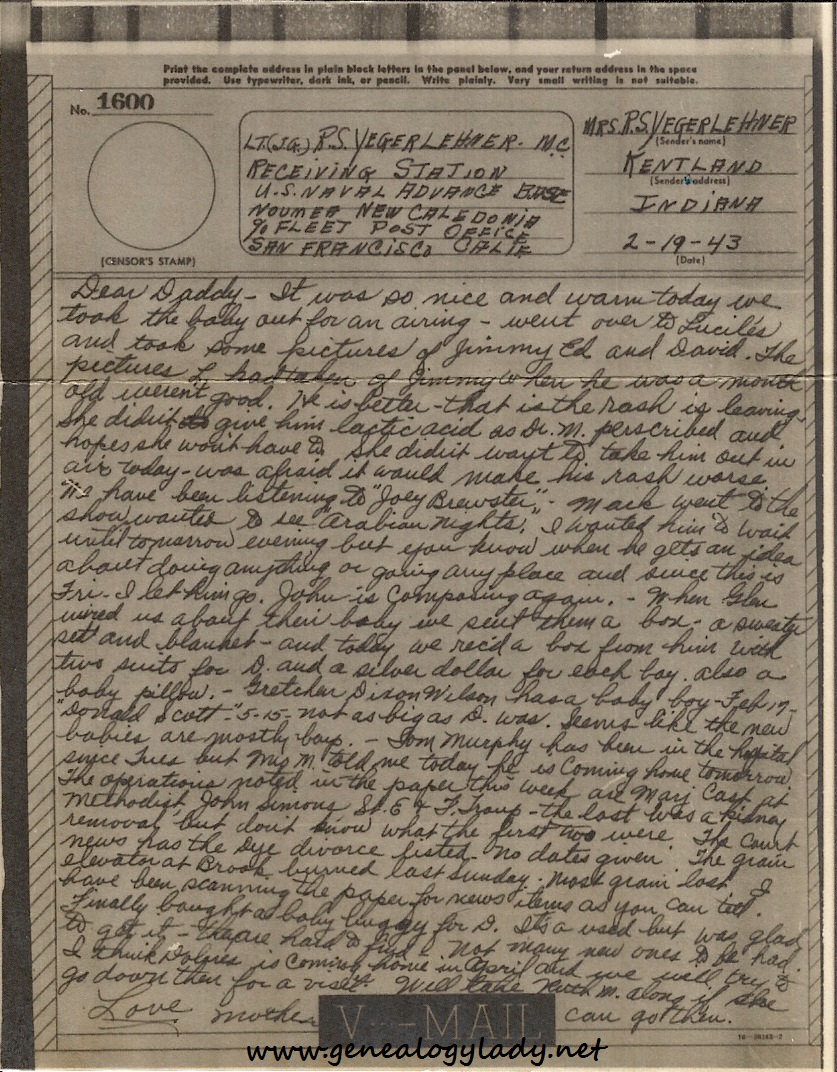 Print the complete address in plain block letters in the panel below, and your return address in the space
provided. Use typewriter, dark ink, or pencil. Write plainly. Very small writing is not suitable.
No. 1600
(CENSOR'S STAMP)
LT.(J.G.) R.S. YEGERLEHNER. M.C.
RECEIVING STATION
U.S. NAVAL ADVANCE BASE
NOUMEA NEW CALEDONIA
% FLEET POST OFFICE
SAN FRANCISCO CALIF
MRS. R.S. YEGERLEHNER
(Sender's name)
KENTLAND
(Sender's address)
INDIANA
2-19-43
(Date)
Dear Daddy - It was so nice and warm today we
took the baby out for an airing - went over to Lucile's
and took some pictures of Jimmy Ed and David. The
pictures L had taken of Jimmy when he was a month
old weren't good. He is better - that is the rash is leaving.
She didn't give him lactic acid as Dr. M. perscribed and
hopes she won't have to. She didn't want to take him out in
air today - was afraid it would make his rash worse.
We have been listening to "Joey Brewster". - Mack went to the
show, wanted to see "Arabian Nights. I wanted him to wait
until tomorrow evening but you know when he gets an idea
about doing anything or going any place and since this is
Fri - I let him go. John is composing again. - When Glen
wired us about their baby we sent them a box - a sweater
set and blanket - and today we rec'd a box from him with
two suits for D. and a silver dollar for each boy. also a
baby pillow. - Gretchen Dixon Wilson has a baby boy - Feb 17 -
"Donald Scott" - 5-15 - not as big as D. was. Seems like the new
babies are mostly boys. - Tom Murphy has been in the hospital
since Tues but Mrs M. told me today he is coming home tomorrow
The operations noted in the paper this week are Marj Cast at
Methodist, John Simons St. E & F. Troup - the last was a kidney
removal, but don't know what the first two were. The Court
news has the Dye divorce listed - no dates given. The grain
elevator at Brook burned last Sunday. Most grain lost. I
have been scanning the paper for news items as you can tell.
Finally bought a baby buggy for D. It's a used but was glad
to get it - they are hard to find. Not many new ones to be had.
I think Dolores is coming home in April and we will try to
go down then for a visit. Will take Ruth M. along if she
can go then.
Love Mother
V - MAIL
www.genealogylady.net